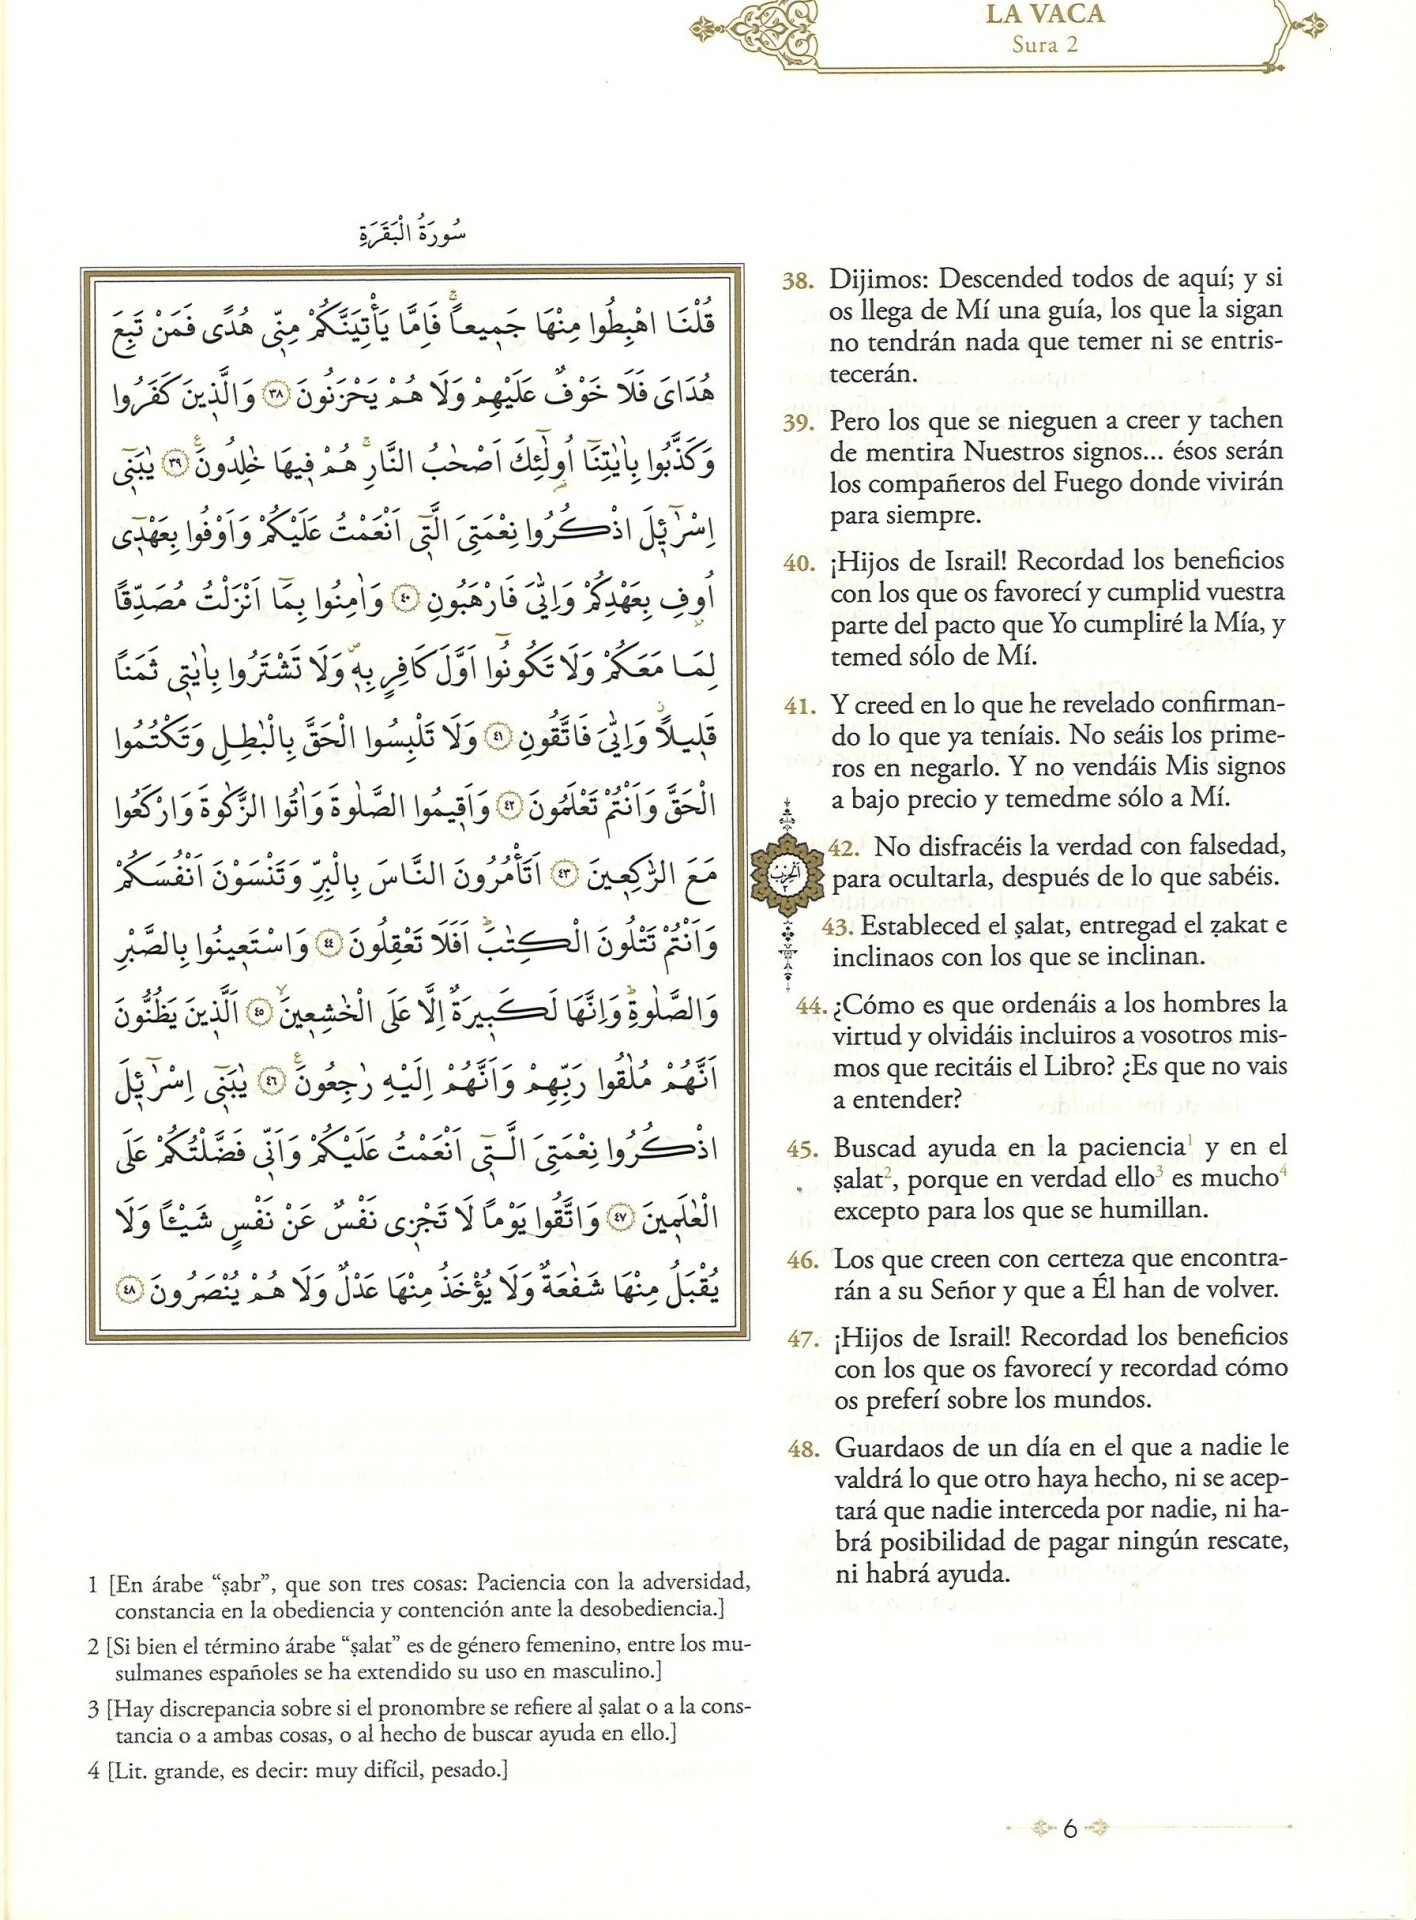 LA VACA
Sura 2
سُورَةُ الْبَقَرَةِ
قُلْنَا اهْبِطُوا مِنْهَا جَمٖيعاًۚ فَاِمَّا يَأْتِيَنَّكُمْ مِنّٖى هُدًى فَمَنْ تَبِعَ
هُدَاىَ فَلَا خَوْفٌ عَلَيْهِمْ وَلَا هُمْ يَحْزَنُونَ ﴿٣٨﴾ وَالَّذٖينَ كَفَرُوا
وَكَذَّبُوا بِاٰيَاتِنَٓا اُولٰٓئِكَ اَصْحَابُ النَّارِۚ هُمْ فٖيهَا خَالِدُونَࣖ ﴿٣٩﴾ يَا بَنٖٓى
اِسْرَٓائٖلَ اذْكُرُوا نِعْمَتِىَ الَّتٖٓى اَنْعَمْتُ عَلَيْكُمْ وَاَوْفُوا بِعَهْدٖٓى
اُوفِ بِعَهْدِكُمْ وَاِيَّاىَ فَارْهَبُونِ ﴿٤٠﴾ وَاٰمِنُوا بِمَٓا اَنْزَلْتُ مُصَدِّقًا
لِمَا مَعَكُمْ وَلَا تَكُونُٓوا اَوَّلَ كَافِرٍ بِهٖۖ وَلَا تَشْتَرُوا بِاٰيَاتٖى ثَمَناً
قَلٖيلاًؗ وَاِيَّاىَ فَاتَّقُونِ ﴿٤١﴾ وَلَا تَلْبِسُوا الْحَقَّ بِالْبَاطِلِ وَتَكْتُمُوا
الْحَقَّ وَاَنْتُمْ تَعْلَمُونَ ﴿٤٢﴾ وَاَقٖيمُوا الصَّلٰوةَ وَاٰتُوا الزَّكٰوةَ وَارْكَعُوا
مَعَ الرَّاكِعٖينَ ﴿٤٣﴾ اَتَأْمُرُونَ النَّاسَ بِالْبِرِّ وَتَنْسَوْنَ اَنْفُسَكُمْ
وَاَنْتُمْ تَتْلُونَ الْكِتَابَؕ اَفَلَا تَعْقِلُونَ ﴿٤٤﴾ وَاسْتَعٖينُوا بِالصَّبْرِ
وَالصَّلٰوةِؕ وَاِنَّهَا لَكَبٖيرَةٌ اِلَّا عَلَى الْخَاشِعٖينَۙ ﴿٤٥﴾ اَلَّذٖينَ يَظُنُّونَ
اَنَّهُمْ مُلَاقُوا رَبِّهِمْ وَاَنَّهُمْ اِلَيْهِ رَاجِعُونَࣖ ﴿٤٦﴾ يَا بَنٖٓى اِسْرَٓائٖلَ
اذْكُرُوا نِعْمَتِىَ الَّتٖٓى اَنْعَمْتُ عَلَيْكُمْ وَاَنّٖى فَضَّلْتُكُمْ عَلَى
الْعَالَمٖينَ ﴿٤٧﴾ وَاتَّقُوا يَوْماً لَا تَجْزٖى نَفْسٌ عَنْ نَفْسٍ شَيْـٔاً وَلَا
يُقْبَلُ مِنْهَا شَفَاعَةٌ وَلَا يُؤْخَذُ مِنْهَا عَدْلٌ وَلَا هُمْ يُنْصَرُونَ ﴿٤٨﴾
38. Dijimos: Descended todos de aquí; y si
os llega de Mí una guía, los que la sigan
no tendrán nada que temer ni se entris-
tecerán.
39. Pero los que se nieguen a creer y tachen
de mentira Nuestros signos... ésos serán
los compañeros del Fuego donde vivirán
para siempre.
40. ¡Hijos de Israil! Recordad los beneficios
con los que os favorecí y cumplid vuestra
parte del pacto que Yo cumpliré la Mía, y
temed sólo de Mí.
41. Y creed en lo que he revelado confirman-
do lo que ya teníais. No seáis los prime-
ros en negarlo. Y no vendáis Mis signos
a bajo precio y temedme sólo a Mí.
الحزب
٢
42. No disfracéis la verdad con falsedad,
para ocultarla, después de lo que sabéis.
43. Estableced el ṣalat, entregad el ẓakat e
inclinaos con los que se inclinan.
44. ¿Cómo es que ordenáis a los hombres la
virtud y olvidáis incluiros a vosotros mis-
mos que recitáis el Libro? ¿Es que no vais
a entender?
45. Buscad ayuda en la paciencia¹ y en el
ṣalat², porque en verdad ello³ es mucho⁴
excepto para los que se humillan.
46. Los que creen con certeza que encontra-
rán a su Señor y que a Él han de volver.
47. ¡Hijos de Israil! Recordad los beneficios
con los que os favorecí y recordad cómo
os preferí sobre los mundos.
48. Guardaos de un día en el que a nadie le
valdrá lo que otro haya hecho, ni se acep-
tará que nadie interceda por nadie, ni ha-
brá posibilidad de pagar ningún rescate,
ni habrá ayuda.
1 [En árabe “ṣabr”, que son tres cosas: Paciencia con la adversidad,
constancia en la obediencia y contención ante la desobediencia.]
2 [Si bien el término árabe “ṣalat” es de género femenino, entre los mu-
sulmanes españoles se ha extendido su uso en masculino.]
3 [Hay discrepancia sobre si el pronombre se refiere al ṣalat o a la cons-
tancia o a ambas cosas, o al hecho de buscar ayuda en ello.]
4 [Lit. grande, es decir: muy difícil, pesado.]
6